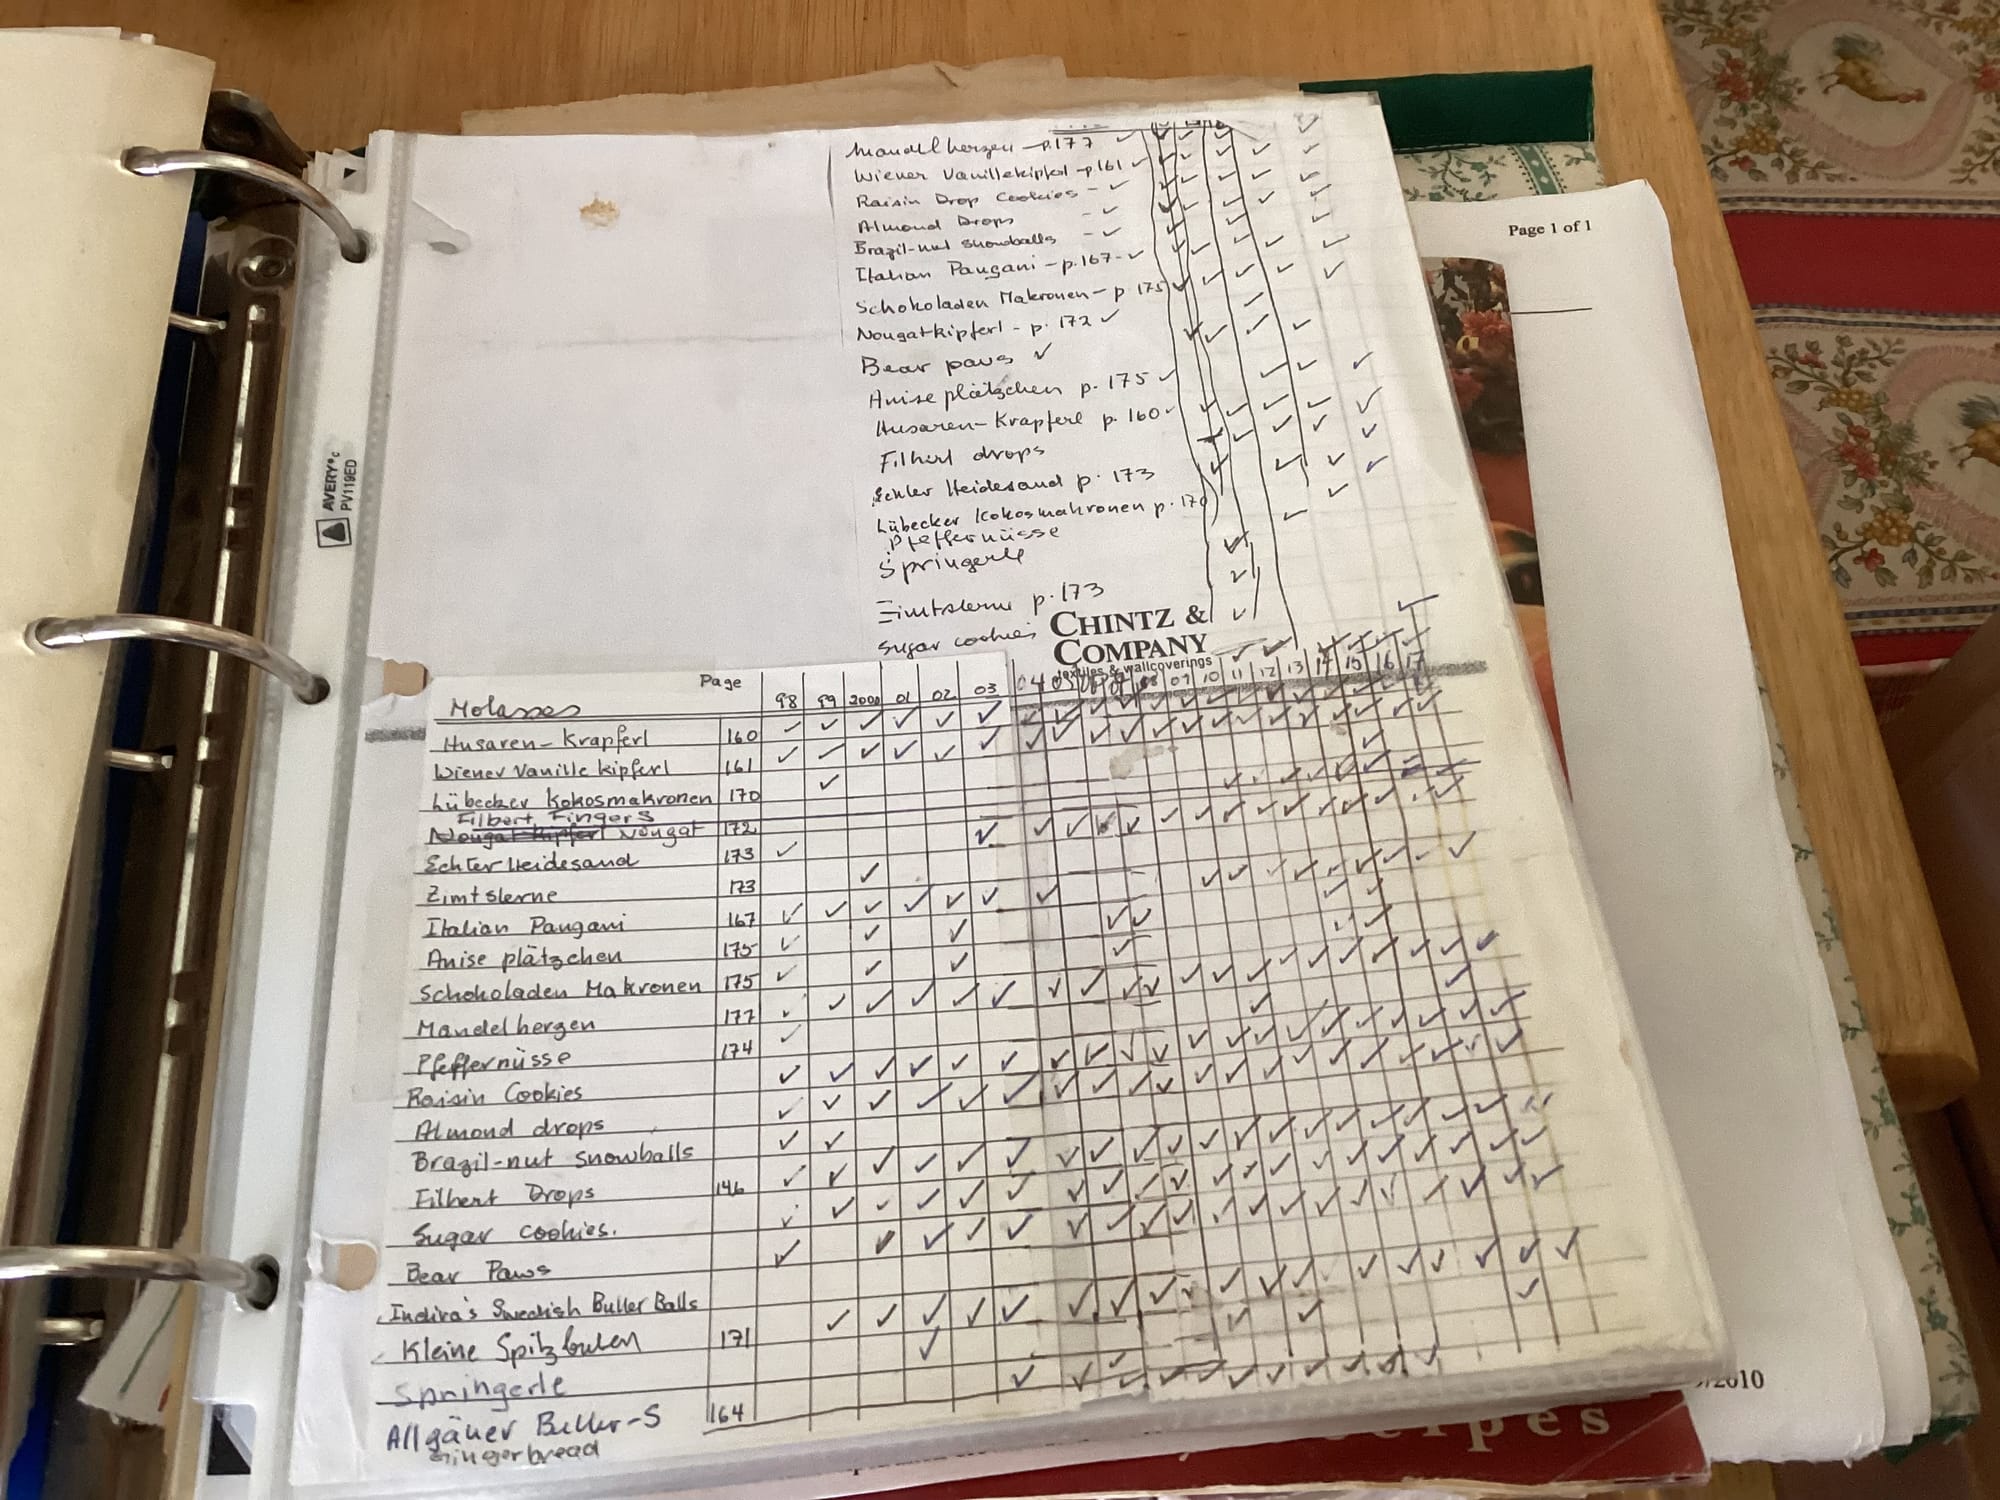 Mandelherzen - p.177 ✓
Wiener Vanillekipferl - p161 ✓
Raisin Drop Cookies - ✓
Almond Drops - ✓
Brazil-nut snowballs - ✓
Italian Paugani - p.167 - ✓
Schokoladen Makronen - p 175
Nougatkipferl - p. 172 ✓
Bear paws ✓
Anise plätzchen p. 175 ✓
Husaren-Krapferl p. 160 ✓
Filbert drops
Echter Heidesand p. 173
Lübecker Kokosmakronen p. 170
Pfeffernüsse
Springerle
Zimtsterne p. 173
Sugar cookies
CHINTZ &
COMPANY
textiles & wallcoverings
Page 98 99 2000 01 02 03 04 05 08 09 10 11 12 13 14 15 16 17
Molasses
Husaren-Krapferl 160
Wiener Vanille kipferl 161
Lübecker Kokosmakronen 170
Filbert Fingers
Nougat kipferl Nougat 172
Echter Heidesand 173
Zimtsterne 173
Italian Paugani 167
Anise plätzchen 175
Schokoladen Makronen 175
Mandelherzen 177
Pfeffernüsse 174
Raisin Cookies
Almond drops
Brazil-nut snowballs
Filbert Drops 146
Sugar cookies.
Bear Paws
Indira's Swedish Butter Balls
Kleine Spitzbuben 171
Springerle
Allgäuer Butter-S 164
Gingerbread
AVERY
PV119ED
Page 1 of 1
/2010